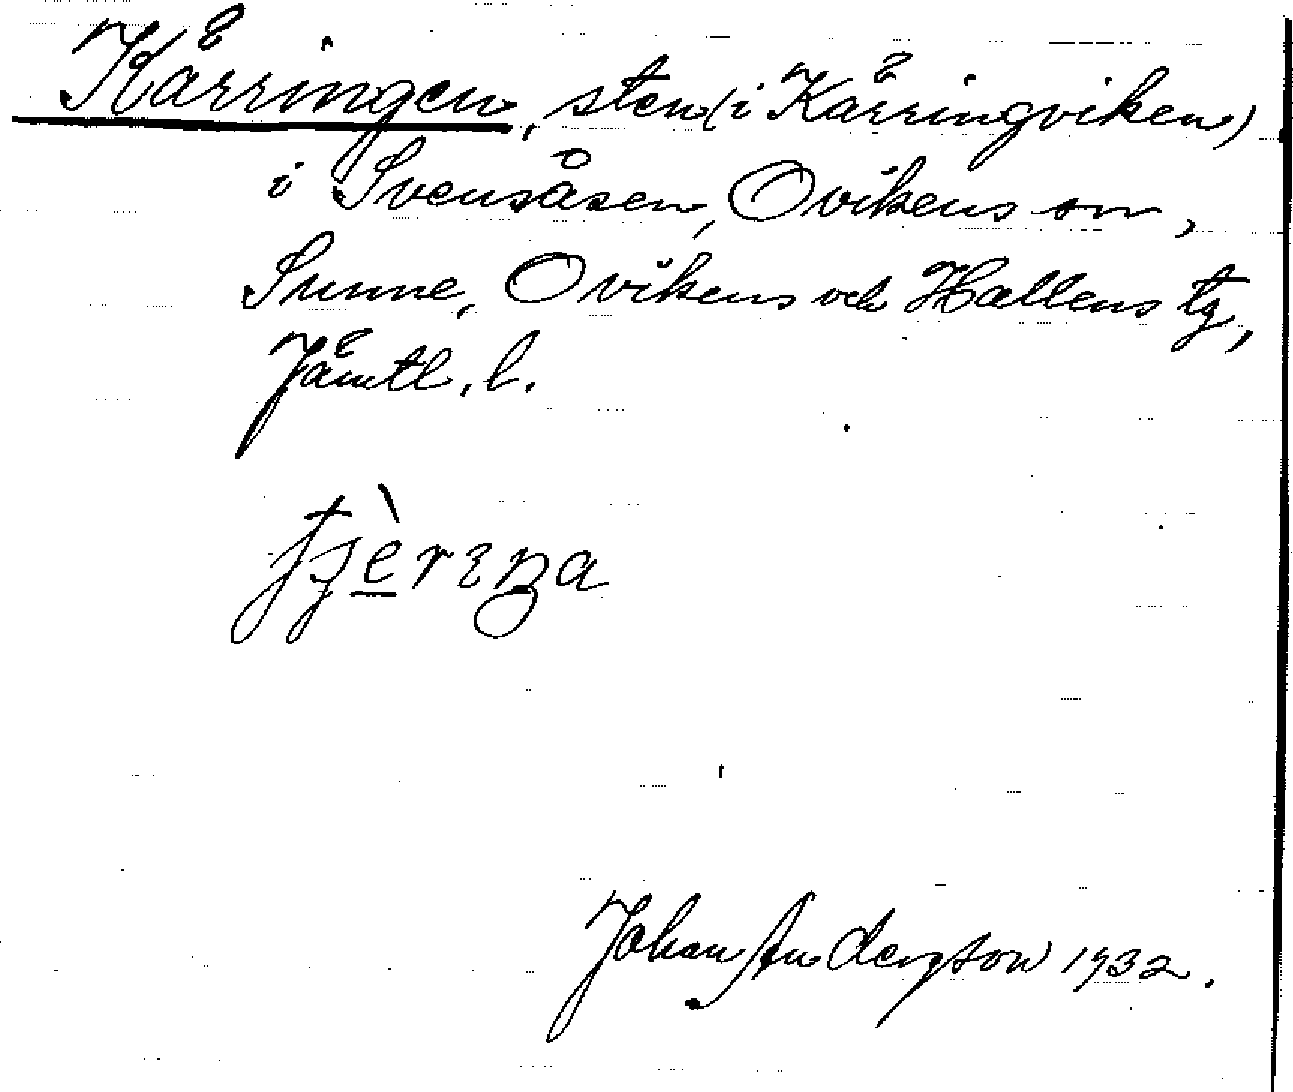 Kärringen, sten (i Kärringviken)
i Svensåsen, Ovikens sn,
Sunne, Ovikens och Hallens tg,
Jämtl. l.
Johan Anderson 1932.